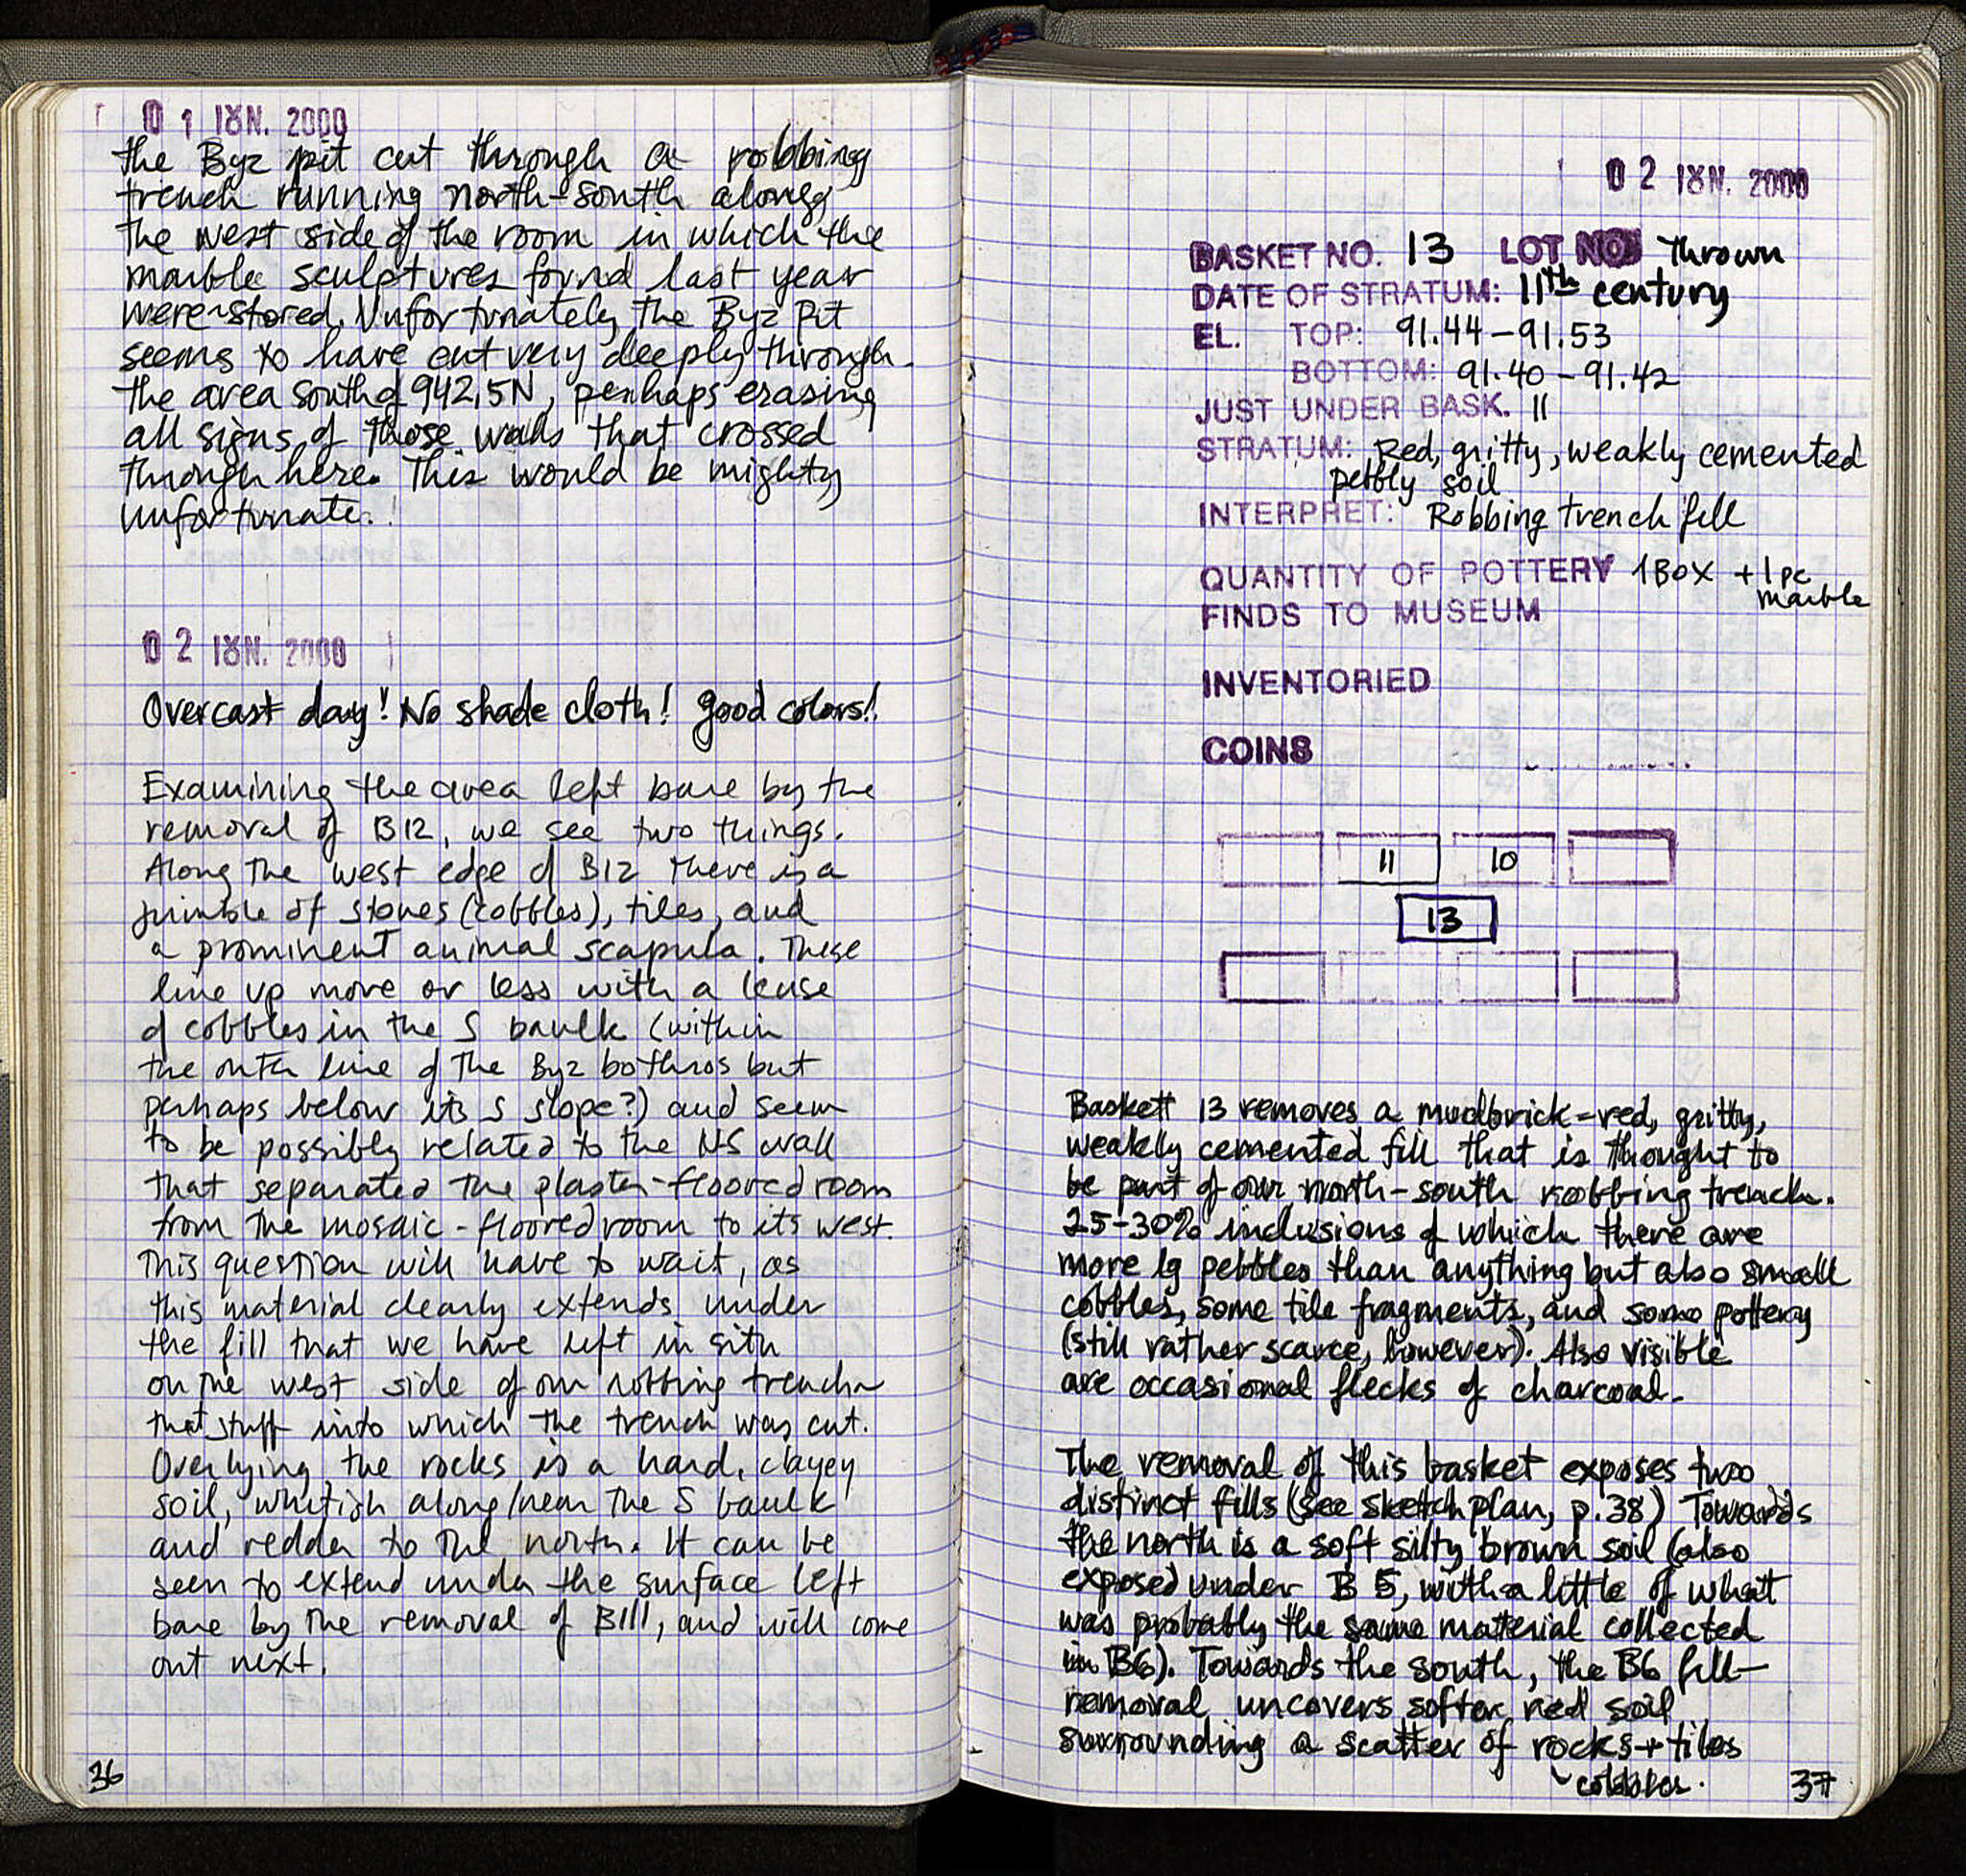 01 ΙΟΥΝ. 2000
the Byz pit cut through a robbing
trench running north-south along
the west side of the room in which the
marble sculptures found last year
were stored. Unfortunately the Byz Pit
seems to have cut very deeply through
the area south of 942.5N, perhaps erasing
all signs of those walls that crossed
through here. This would be mighty
unfortunate.
02 ΙΟΥΝ. 2000
Overcast day! No shade cloth! good colors!
Examining the area left bare by the
removal of B12, we see two things.
Along the west edge of B12 there is a
jumble of stones (cobbles), tiles, and
a prominent animal scapula. These
line up more or less with a lense
of cobbles in the S baulk (within
the line of the Byz bothros but
perhaps below its S slope?) and seem
to be possibly related to the NS wall
that separated the plaster-floored room
from the mosaic-floored room to its west.
This question will have to wait, as
this material clearly extends under
the fill that we have left in situ
on the west side of our robbing trench
that stuff into which the trench was cut.
Overlying the rocks is a hard, clayey
soil, whitish along/near the S baulk
and redder to the north. It can be
seen to extend under the surface left
bare by the removal of B111, and will come
out next.
36
02 ΙΟΥΝ. 2000
BASKET NO. 13 LOT NO thrown
DATE OF STRATUM: 11th century
EL. TOP: 91.44-91.53
BOTTOM: 91.40-91.42
JUST UNDER BASK. 11
STRATUM: Red, gritty, weakly cemented
pebbly soil
INTERPRET: Robbing trench fill
QUANTITY OF POTTERY 1 BOX + 1 pc
marble
FINDS TO MUSEUM
INVENTORIED
COINS
11 10
13
Basket 13 removes a mudbrick-red, gritty,
weakly cemented fill that is thought to
be part of our north-south robbing trench.
25-30% inclusions of which there are
more lg pebbles than anything but also small
cobbles, some tile fragments, and some pottery
(still rather scarce, however). Also visible
are occasional flecks of charcoal.
The removal of this basket exposes two
distinct fills (see sketch plan, p. 38) Towards
the north is a soft silty brown soil (also
exposed under B 5, with a little of what
was probably the same material collected
in B6). Towards the south, the B6 fill-
removal uncovers softer red soil
surrounding a scatter of rocks + tiles
cobbles.
37